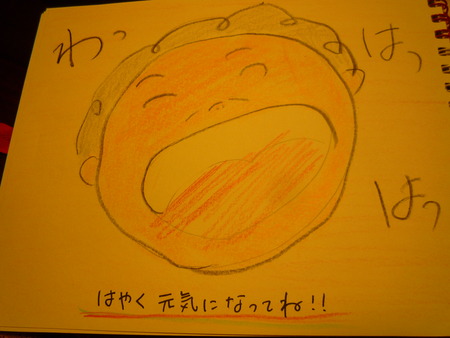 わっ
はっ
はっ
はやく 元気になってね!!